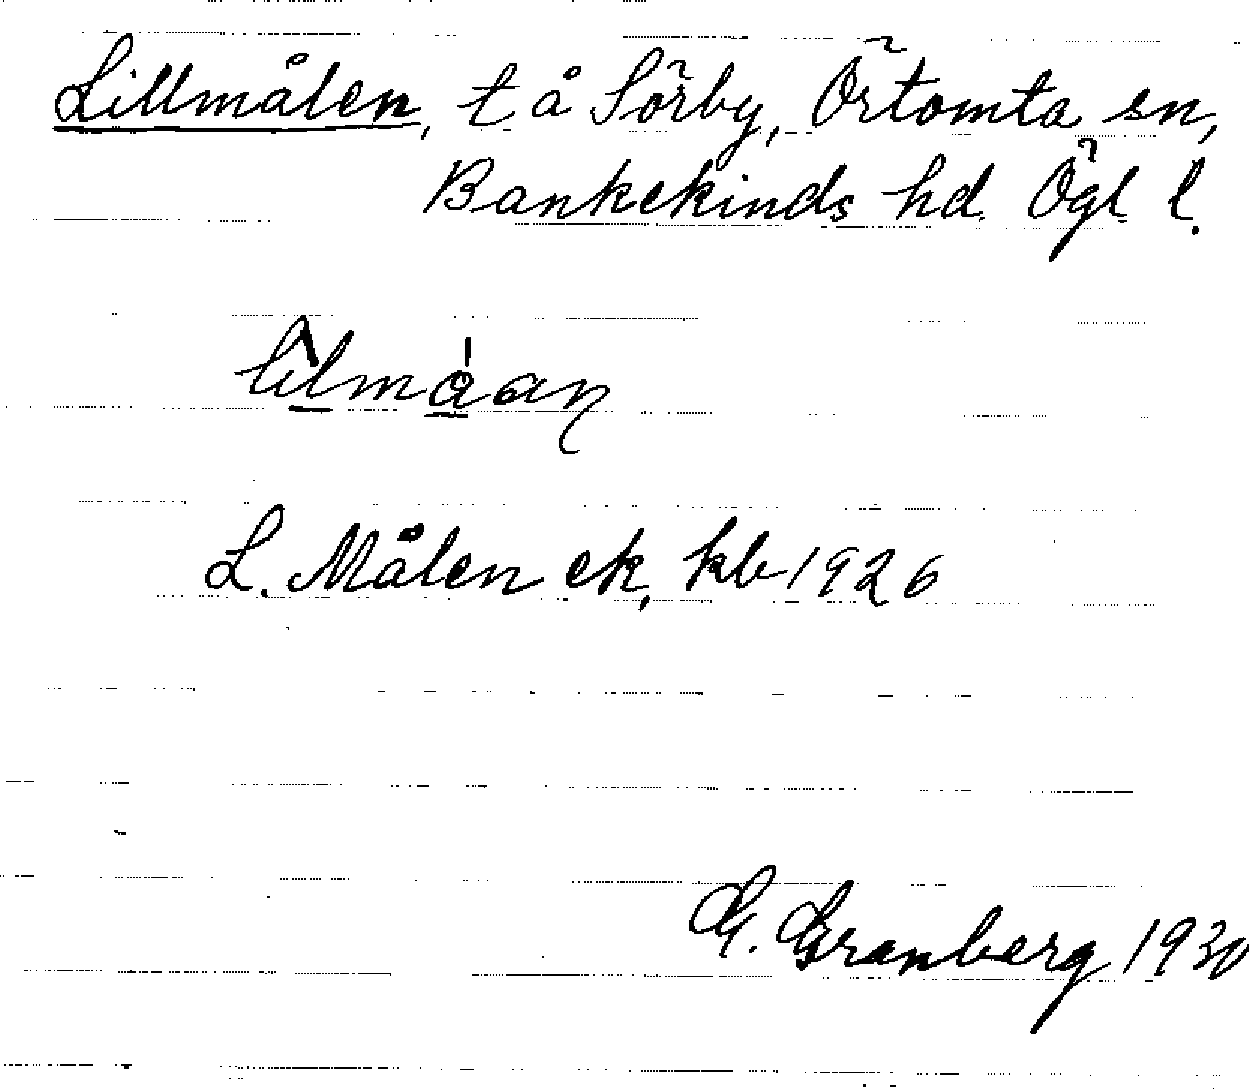 Lillmålen, t å Sörby, Örtomta sn,
Bankekinds hd. Ögl l.
L. Målen ek, kb 1926
G. Granberg 1930